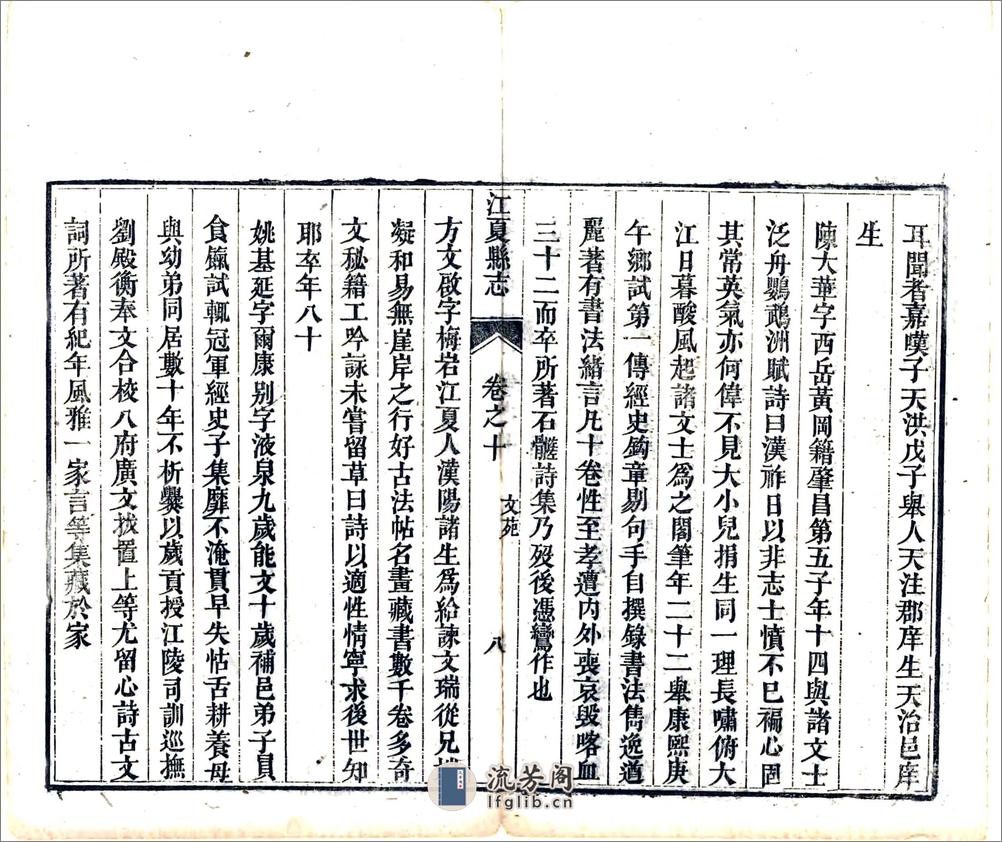 耳聞者嘉嘆子天洪戊子舉人天注郡庠生天治邑庠
生
陳大華字西岳黃岡籍肇昌第五子年十四與諸文士
泛舟鸚鵡洲賦詩曰漢祚日以非志士憤不已褊心固
其常英氣亦何偉不見大小兒捐生同一理長嘯俯大
江日暮酸風起諸文士爲之閣筆年二十二舉康熙庚
午鄉試第一傳經史鈎章剔句手自撰錄書法雋逸遒
麗著有書法緒言凡十卷性至孝遭內外喪哀毀咯血
三十二而卒所著石髓詩集乃歿後憑鸞作也
江夏縣志
卷之十
文苑
八
方文啟字梅岩江夏人漢陽諸生爲給諫文瑞從兄
凝和易無崖岸之行好古法帖名畫藏書數千卷多奇
文秘籍工吟詠未嘗留草曰詩以適性情寧求後世知
耶卒年八十
姚基延字爾康別字液泉九歲能文十歲補邑弟子員
食餼試輒冠軍經史子集靡不淹貫早失怙舌耕養母
與幼弟同居數十年不析爨以歲貢授江陵司訓巡撫
劉殿衡奉文合校八府廣文拔置上等尤留心詩古文
詞所著有紀年風雅一家言等集藏於家
流芳閣
lfglib.cn